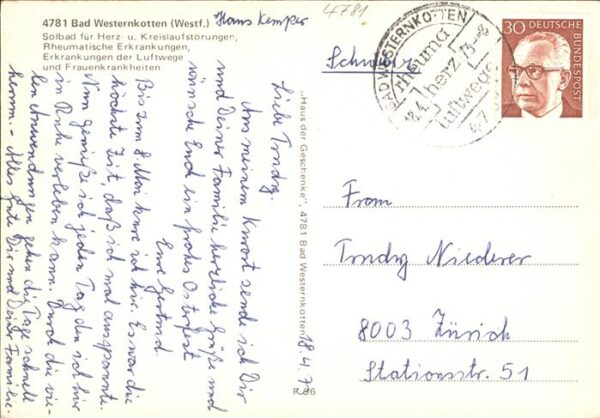 4781 Bad Westernkotten (Westf.)
Solbad für Herz- u. Kreislaufstörungen,
Rheumatische Erkrankungen,
Erkrankungen der Luftwege
und Frauenkrankheiten
Hans Kemper
4781
Schweiz
BAD WESTERNKOTTEN
rheuma
herz
luftwege
18.4.73-8
30 DEUTSCHE
BUNDESPOST
18.4.7
Liebe Trudy.
Aus meinem Kurort sende ich Dir
und Deiner Familie herzliche Grüße und
wünsche Euch ein frohes Osterfest
Eure Gertrud.
Bis zum 8. Mai kure ich hier. Es war die
höchste Zeit, daß ich mal ausspannte.
Nun genieße ich jeden Tag den ich hier
in Ruhe verleben kann. Durch die vie-
len Anwendungen gehen die Tage schnell
herum.- Alles Gute Dir und Deiner Familie
„Haus der Geschenke", 4781 Bad Westernkotten
R 86
Frau
Trudy Niederer
8003 Zürich
Stationsstr. 51